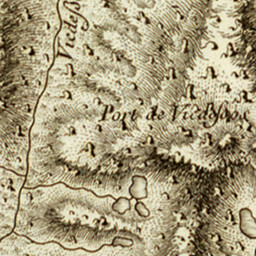 Videſſ
Port de Viedeſsos